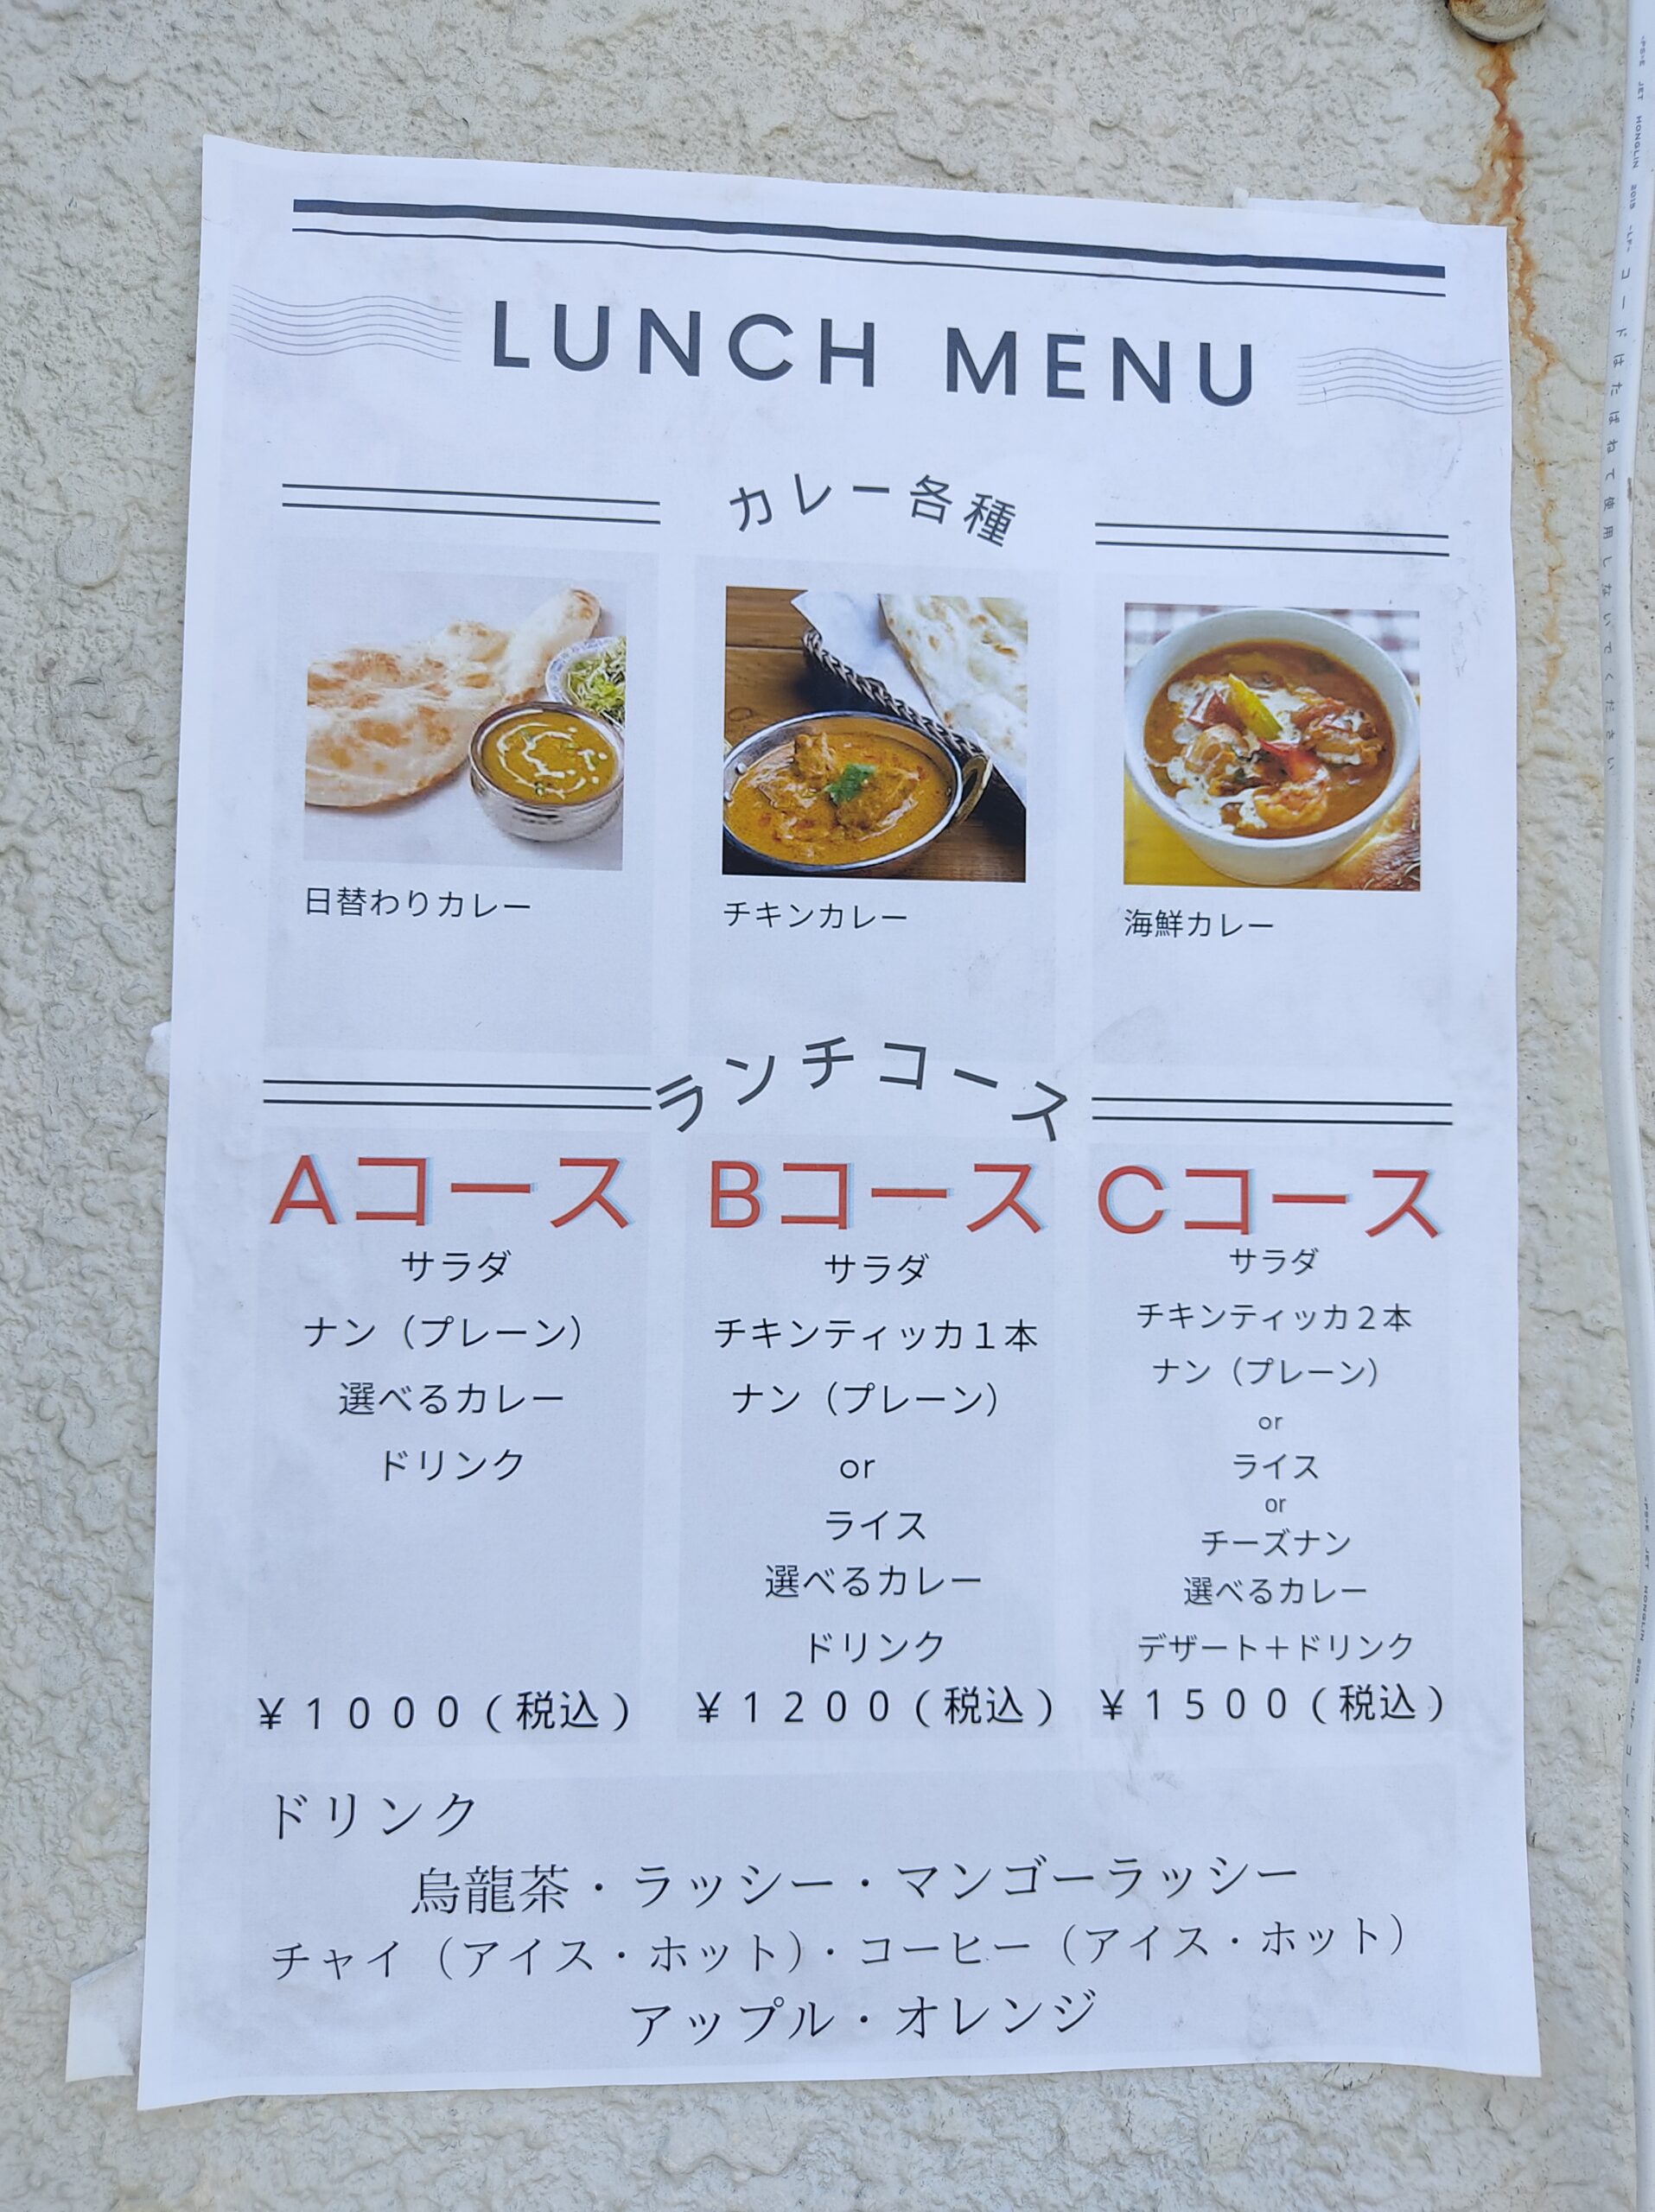 LUNCH MENU
カレー各種
日替わりカレー
チキンカレー
海鮮カレー
ランチコース
Aコース
サラダ
ナン（プレーン）
選べるカレー
ドリンク
￥１０００(税込)
Bコース
サラダ
チキンティッカ１本
ナン（プレーン）
or
ライス
選べるカレー
ドリンク
￥１２００(税込)
Cコース
サラダ
チキンティッカ２本
ナン（プレーン）
or
ライス
or
チーズナン
選べるカレー
デザート＋ドリンク
￥１５００(税込)
ドリンク
烏龍茶・ラッシー・マンゴーラッシー
チャイ（アイス・ホット）・コーヒー（アイス・ホット）
アップル・オレンジ
JET HONGLIN 2015 -LF- コードはたばねて使用しないでください